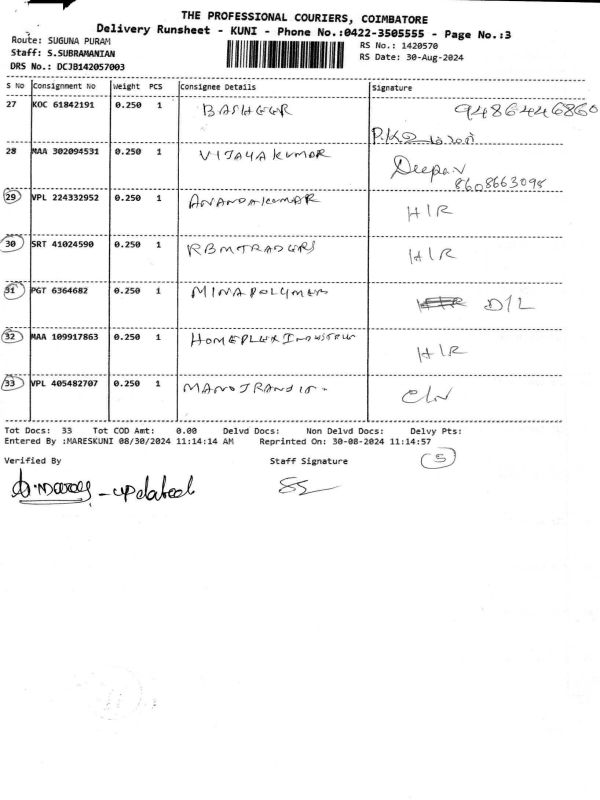 THE PROFESSIONAL COURIERS, COIMBATORE
Delivery Runsheet - KUNI - Phone No.:0422-3505555 - Page No.:3
Route: SUGUNA PURAM
RS No.: 1420570
Staff: S.SUBRAMANIAN
RS Date: 30-Aug-2024
DRS No.: DCJB142057003
S No Consignment No Weight PCS Consignee Details Signature
27 KOC 61842191 0.250 1 BASHEER 9486446860
28 MAA 302094531 0.250 1 VIJAYAKUMAR Deepa.V
8608663098
29 VPL 224332952 0.250 1 ANANDAKUMAR H/R
30 SRT 41024590 0.250 1 RBMTRADERS H/R
31 PGT 6364682 0.250 1 MINAPOLYMERS D/L
32 MAA 109917863 0.250 1 HOMEPLEX H/R
33 VPL 405482707 0.250 1
Tot Docs: 33 Tot COD Amt: 0.00 Delvd Docs: Non Delvd Docs: Delvy Pts:
Entered By :MARESKUNI 08/30/2024 11:14:14 AM Reprinted On: 30-08-2024 11:14:57
Verified By Staff Signature 5
- updated